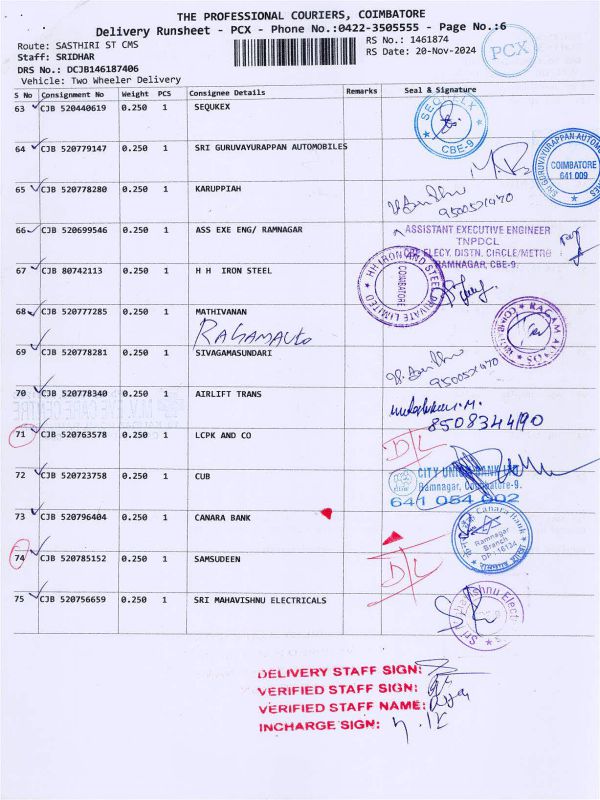 THE PROFESSIONAL COURIERS, COIMBATORE
Delivery Runsheet - PCX - Phone No.:0422-3505555 - Page No.:6
Route: SASTHIRI ST CMS
RS No.: 1461874
Staff: SRIDHAR
RS Date: 20-Nov-2024
PCX
DRS No.: DCJB146187406
Vehicle: Two Wheeler Delivery
S No Consignment No Weight PCS Consignee Details Remarks Seal & Signature
63 CJB 520440619 0.250 1 SEQUKEX
CBE-9
64 CJB 520779147 0.250 1 SRI GURUVAYURAPPAN AUTOMOBILES
SRI GURUVAYURAPPAN
COIMBATORE
641 009
65 CJB 520778280 0.250 1 KARUPPIAH
9500521470
66 CJB 520699546 0.250 1 ASS EXE ENG/ RAMNAGAR
ASSISTANT EXECUTIVE ENGINEER
TNPDCL
ELECY. DISTN. CIRCLE/METRO
RAMNAGAR, CBE-9.
67 CJB 80742113 0.250 1 H H IRON STEEL
HH IRON AND STEEL PRIVATE LIMITED
COIMBATORE
68 CJB 520777285 0.250 1 MATHIVANAN
RAGAMAUTO
69 CJB 520778281 0.250 1 SIVAGAMASUNDARI
9500521470
70 CJB 520778340 0.250 1 AIRLIFT TRANS
8508344190
71 CJB 520763578 0.250 1 LCPK AND CO
D/L
72 CJB 520723758 0.250 1 CUB
CITY UNION BANK LTD
Ramnagar, Coimbatore-9.
641 054 002
73 CJB 520796404 0.250 1 CANARA BANK
Canara Bank
Ramnagar
Branch
74 CJB 520785152 0.250 1 SAMSUDEEN
D/L
75 CJB 520756659 0.250 1 SRI MAHAVISHNU ELECTRICALS
DELIVERY STAFF SIGN:
VERIFIED STAFF SIGN:
VERIFIED STAFF NAME:
INCHARGE SIGN: